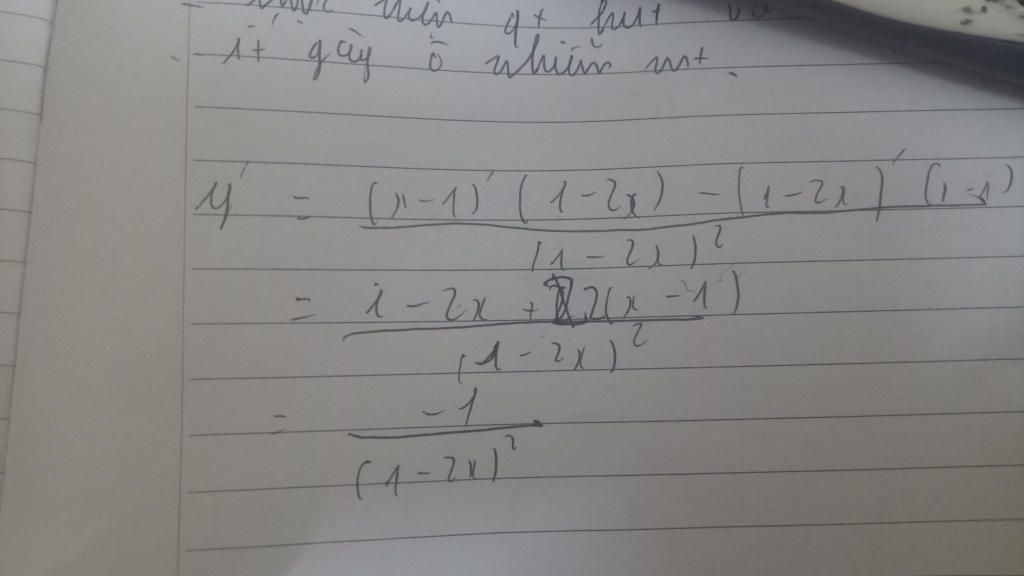 qt hut và
- it gây ô nhiễm mt.
y' = (x-1)' (1-2x) - (1-2x)' (x-1)
(1-2x)²
= 1-2x + 2(x-1)
(1-2x)²
= -1
(1-2x)²